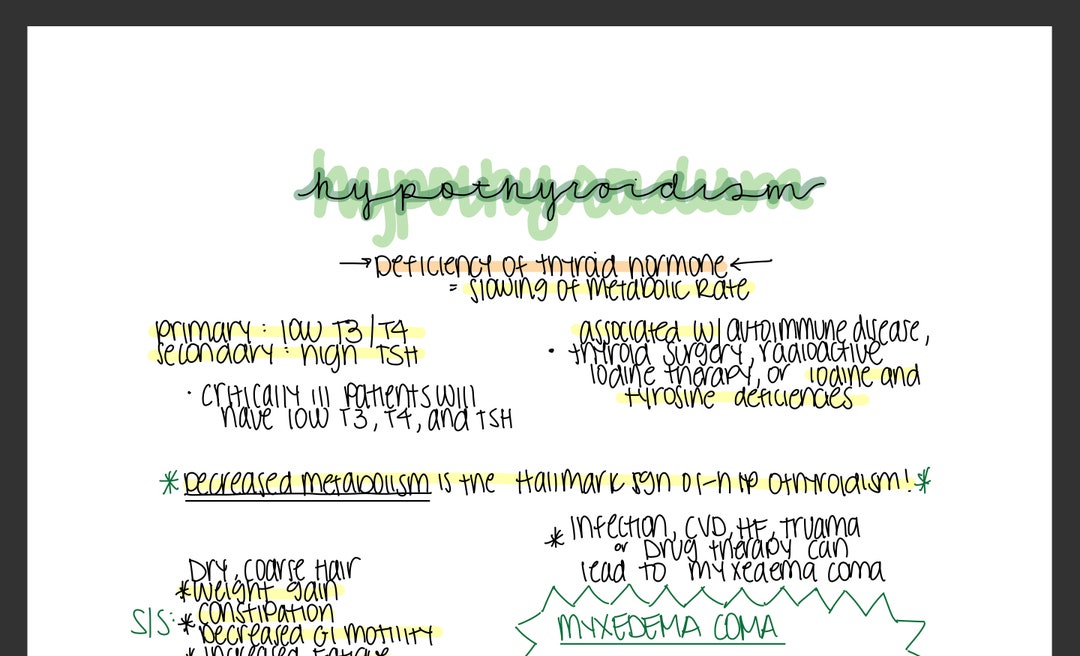 hypothyroidism
→ Deficiency of thyroid hormone ←
= slowing of Metabolic Rate
primary : low T3/T4
secondary : high TSH
· critically ill patients will
have low T3, T4, and TSH
associated w/ autoimmune disease,
· thyroid surgery, radioactive
iodine therapy, or iodine and
tyrosine deficiencies
* Decreased metabolism is the Hallmark sign of hypothyroidism! *
* Infection, CVD, HF, truama
or Drug therapy can
lead to myxedema coma
S/S:
Dry, coarse Hair
* weight gain
* constipation
Decreased GI motility
* Increased Fatigue
MYXEDEMA COMA